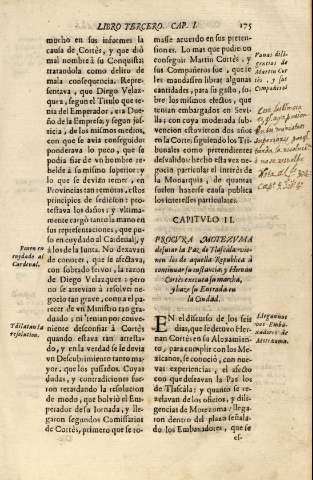 LIBRO TERCERO. CAP. I. 175
mucho en sus informes la
causa de Cortès, y que diò
mal nombre à su Conquista:
tratandola como delito de
mala consequencia. Repre-
sentava, que Diego Velaz-
quez, segun el Titulo que te-
nia del Emperador, era Due-
ño de la Empresa, y segun jus-
ticia, de los mismos medios,
con que se avia conseguido:
ponderava lo poco, que se
podia fiar de vn hombre re-
belde à su mismo superior: y
lo que se devian temer, en
Provincias tan remotas, estos
principios de sedicion: pro-
testava los daños; y vltima-
mente cargò tanto la mano en
sus representaciones, que pu-
so en cuydado al Cardenal, y
à los de la Junta. No dexavan
de conocer, que se afectava,
con sobrado fervor, la razon
de Diego Velazquez: pero
no se atrevian à resolver ne-
gocio tan grave, contra el pa-
recer de vn Ministro tan gra-
duado; ni tenian por conve-
niente desconfiar à Cortès
quando estava tan arresta-
do, y en la verdad se le devia
vn Descubrimiento tanto ma-
yor, que los passados. Cuyas
dudas, y contradiciones fue-
ron retardando la resolucion
de modo, que bolviò el Em-
perador de su Jornada, y lle-
garon segundos Comissarios
de Cortès, primero que se to-
Ponen en
cuydado al
Cardenal.
Dilatan la
resolucion.
masse acuerdo en sus preten-
siones. Lo mas que pudieron
conseguir Martin Cortès, y
sus Compañeros fue, que se
les mandassen librar algunas
cantidades, para su gasto, so-
bre los mismos efectos, que
tenian embargados en Sevi-
lla; con cuya moderada sub-
vencion estuvieron dos años
en la Corte, siguiendo los Tri-
bunales como pretendientes
desvalidos: hecho esta vez ne-
gocio particular el interès de
la Monarquia, de quantas
suelen hazerse causa publica
los intereses particulares.
CAPITVLO II.
PROCVRA MOTEZVMA
desviar la Paz de Tlascala: vie-
nen los de aquella Republica à
continuar su instancia, y Hernan
Cortès executa su marcha,
y haze su Entrada en
la Ciudad.
EN el discurso de los seis
dias, que se detuvo Hernan
Cortès en su Alojamien-
to, para cumplir con los Me-
xicanos, se conociò, con nue-
vas experiencias, el afecto
con que deseavan la Paz los
de Tlascàla; y quanto se re-
zelavan de los oficios, y dili-
gencias de Motezuma: llega-
ron dentro del plazo señala-
do los Embaxadores, que se
es-
Llegan nue-
vos Emba-
xadores de
Motezuma.